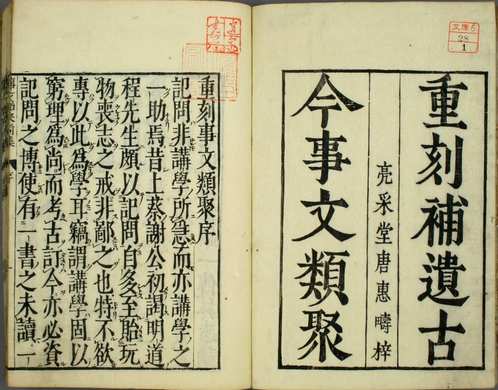 重刻補遺古
今事文類聚
亮采堂唐惠疇梓
重刻事文類聚序
記問非講學所急而亦講學之
一助焉昔上蔡謝公初謁明道
程先生頗以記問自多至貽玩
物喪志之戒非鄙之也特不欲
專以此為學耳竊謂講學固以
窮理為尚而考古訂今亦必資
記問之博使有一書之未讀一
28
1